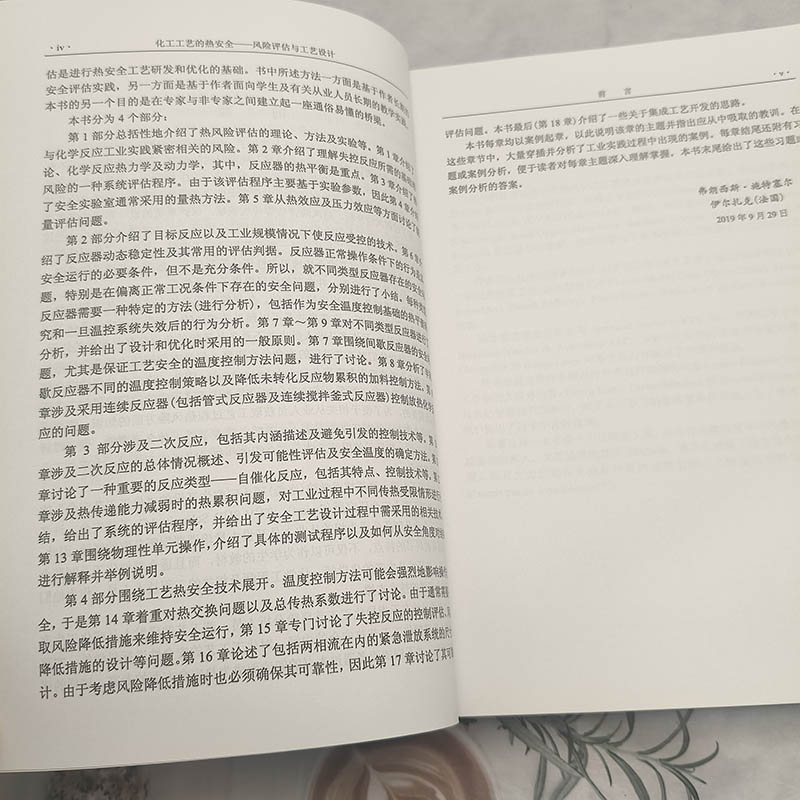 · iv ·
化工工艺的热安全——风险评估与工艺设计
估是进行热安全工艺研发和优化的基础。书中所述方法一方面是基于作者长期的
安全评估实践，另一方面是基于作者面向学生及有关从业人员长期的教学实践。
本书的另一个目的是在专家与非专家之间建立起一座通俗易懂的桥梁。
本书分为 4 个部分：
第 1 部分总括性地介绍了热风险评估的理论、方法及实验等。第 1 章介绍了
与化学反应工业实践紧密相关的风险。第 2 章介绍了理解失控反应所需的基础
论、化学反应热力学及动力学，其中，反应器的热平衡是重点。第 3 章介绍了热
风险的一种系统评估程序。由于该评估程序主要基于实验参数，因此第 4 章介
了安全实验室通常采用的量热方法。第 5 章从热效应及压力效应等方面讨论了
量评估问题。
第 2 部分介绍了目标反应以及工业规模情况下使反应受控的技术。第 6 章
绍了反应器动态稳定性及其常用的评估判据。反应器正常操作条件下的行为是
安全运行的必要条件，但不是充分条件。所以，就不同类型反应器存在的安全
题，特别是在偏离正常工况条件下存在的安全问题，分别进行了小结。每种类
反应器需要一种特定的方法(进行分析)，包括作为安全温度控制基础的热平衡
究和一旦温控系统失效后的行为分析。第 7 章～第 9 章对不同类型反应器进行
分析，并给出了设计和优化时采用的一般原则。第 7 章围绕间歇反应器的安全
题，尤其是保证工艺安全的温度控制方法问题，进行了讨论。第 8 章分析了半
歇反应器不同的温度控制策略以及降低未转化反应物累积的加料控制方法。第
章涉及采用连续反应器(包括管式反应器及连续搅拌釜式反应器)控制放热化学
应的问题。
第 3 部分涉及二次反应，包括其内涵描述及避免引发的控制技术等。第
章涉及二次反应的总体情况概述、引发可能性评估及安全温度的确定方法。第
章讨论了一种重要的反应类型——自催化反应，包括其特点、控制技术等。第
章涉及热传递能力减弱时的热累积问题，对工业过程中不同传热受限情形进行
结，给出了系统的评估程序，并给出了安全工艺设计过程中需采用的相关技术。
第 13 章围绕物理性单元操作，介绍了具体的测试程序以及如何从安全角度对结
进行解释并举例说明。
第 4 部分围绕工艺热安全技术展开。温度控制方法可能会强烈地影响操作
全，于是第 14 章着重对热交换问题以及总传热系数进行了讨论。由于通常需
取风险降低措施来维持安全运行，第 15 章专门讨论了失控反应的控制评估、
降低措施的设计等问题。第 16 章论述了包括两相流在内的紧急泄放系统的尺寸
计。由于考虑风险降低措施时也必须确保其可靠性，因此第 17 章讨论了其可靠
前 言
· v ·
评估问题。本书最后(第 18 章)介绍了一些关于集成工艺开发的思路。
本书每章均以案例起章，以此说明该章的主题并指出应从中吸取的教训。在
这些章节中，大量穿插并分析了工业实践过程中出现的案例。每章结尾还附有习
题或案例分析，便于读者对每章主题深入理解掌握。本书末尾给出了这些习题或
案例分析的答案。
弗朗西斯·施特塞尔
伊尔扎克(法国)
2019 年 9 月 29 日